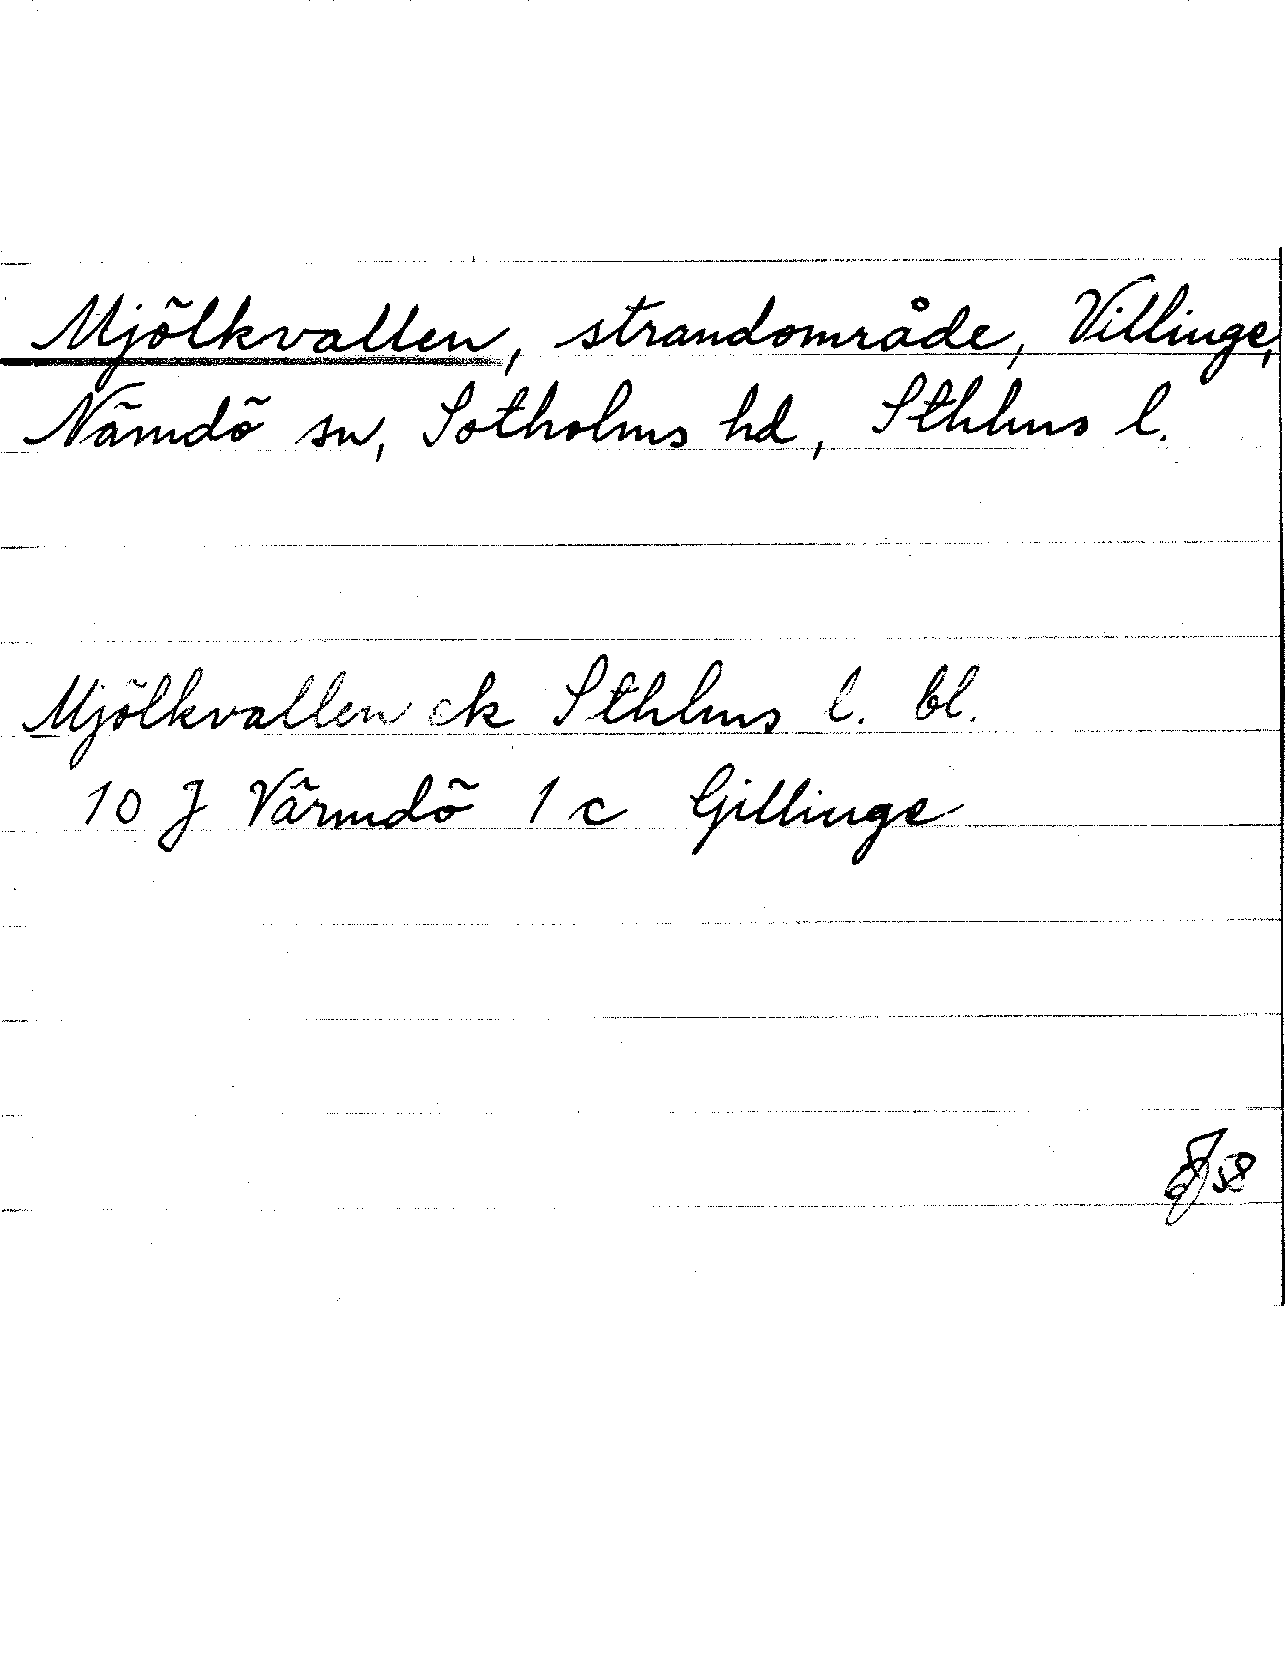 Mjölkvallen, strandområde, Villinge,
Nämdö sn, Sotholms hd, Sthlms l.
Mjölkvallen ek Sthlms l. bl.
10 J Värmdö 1 c Gillinge
58